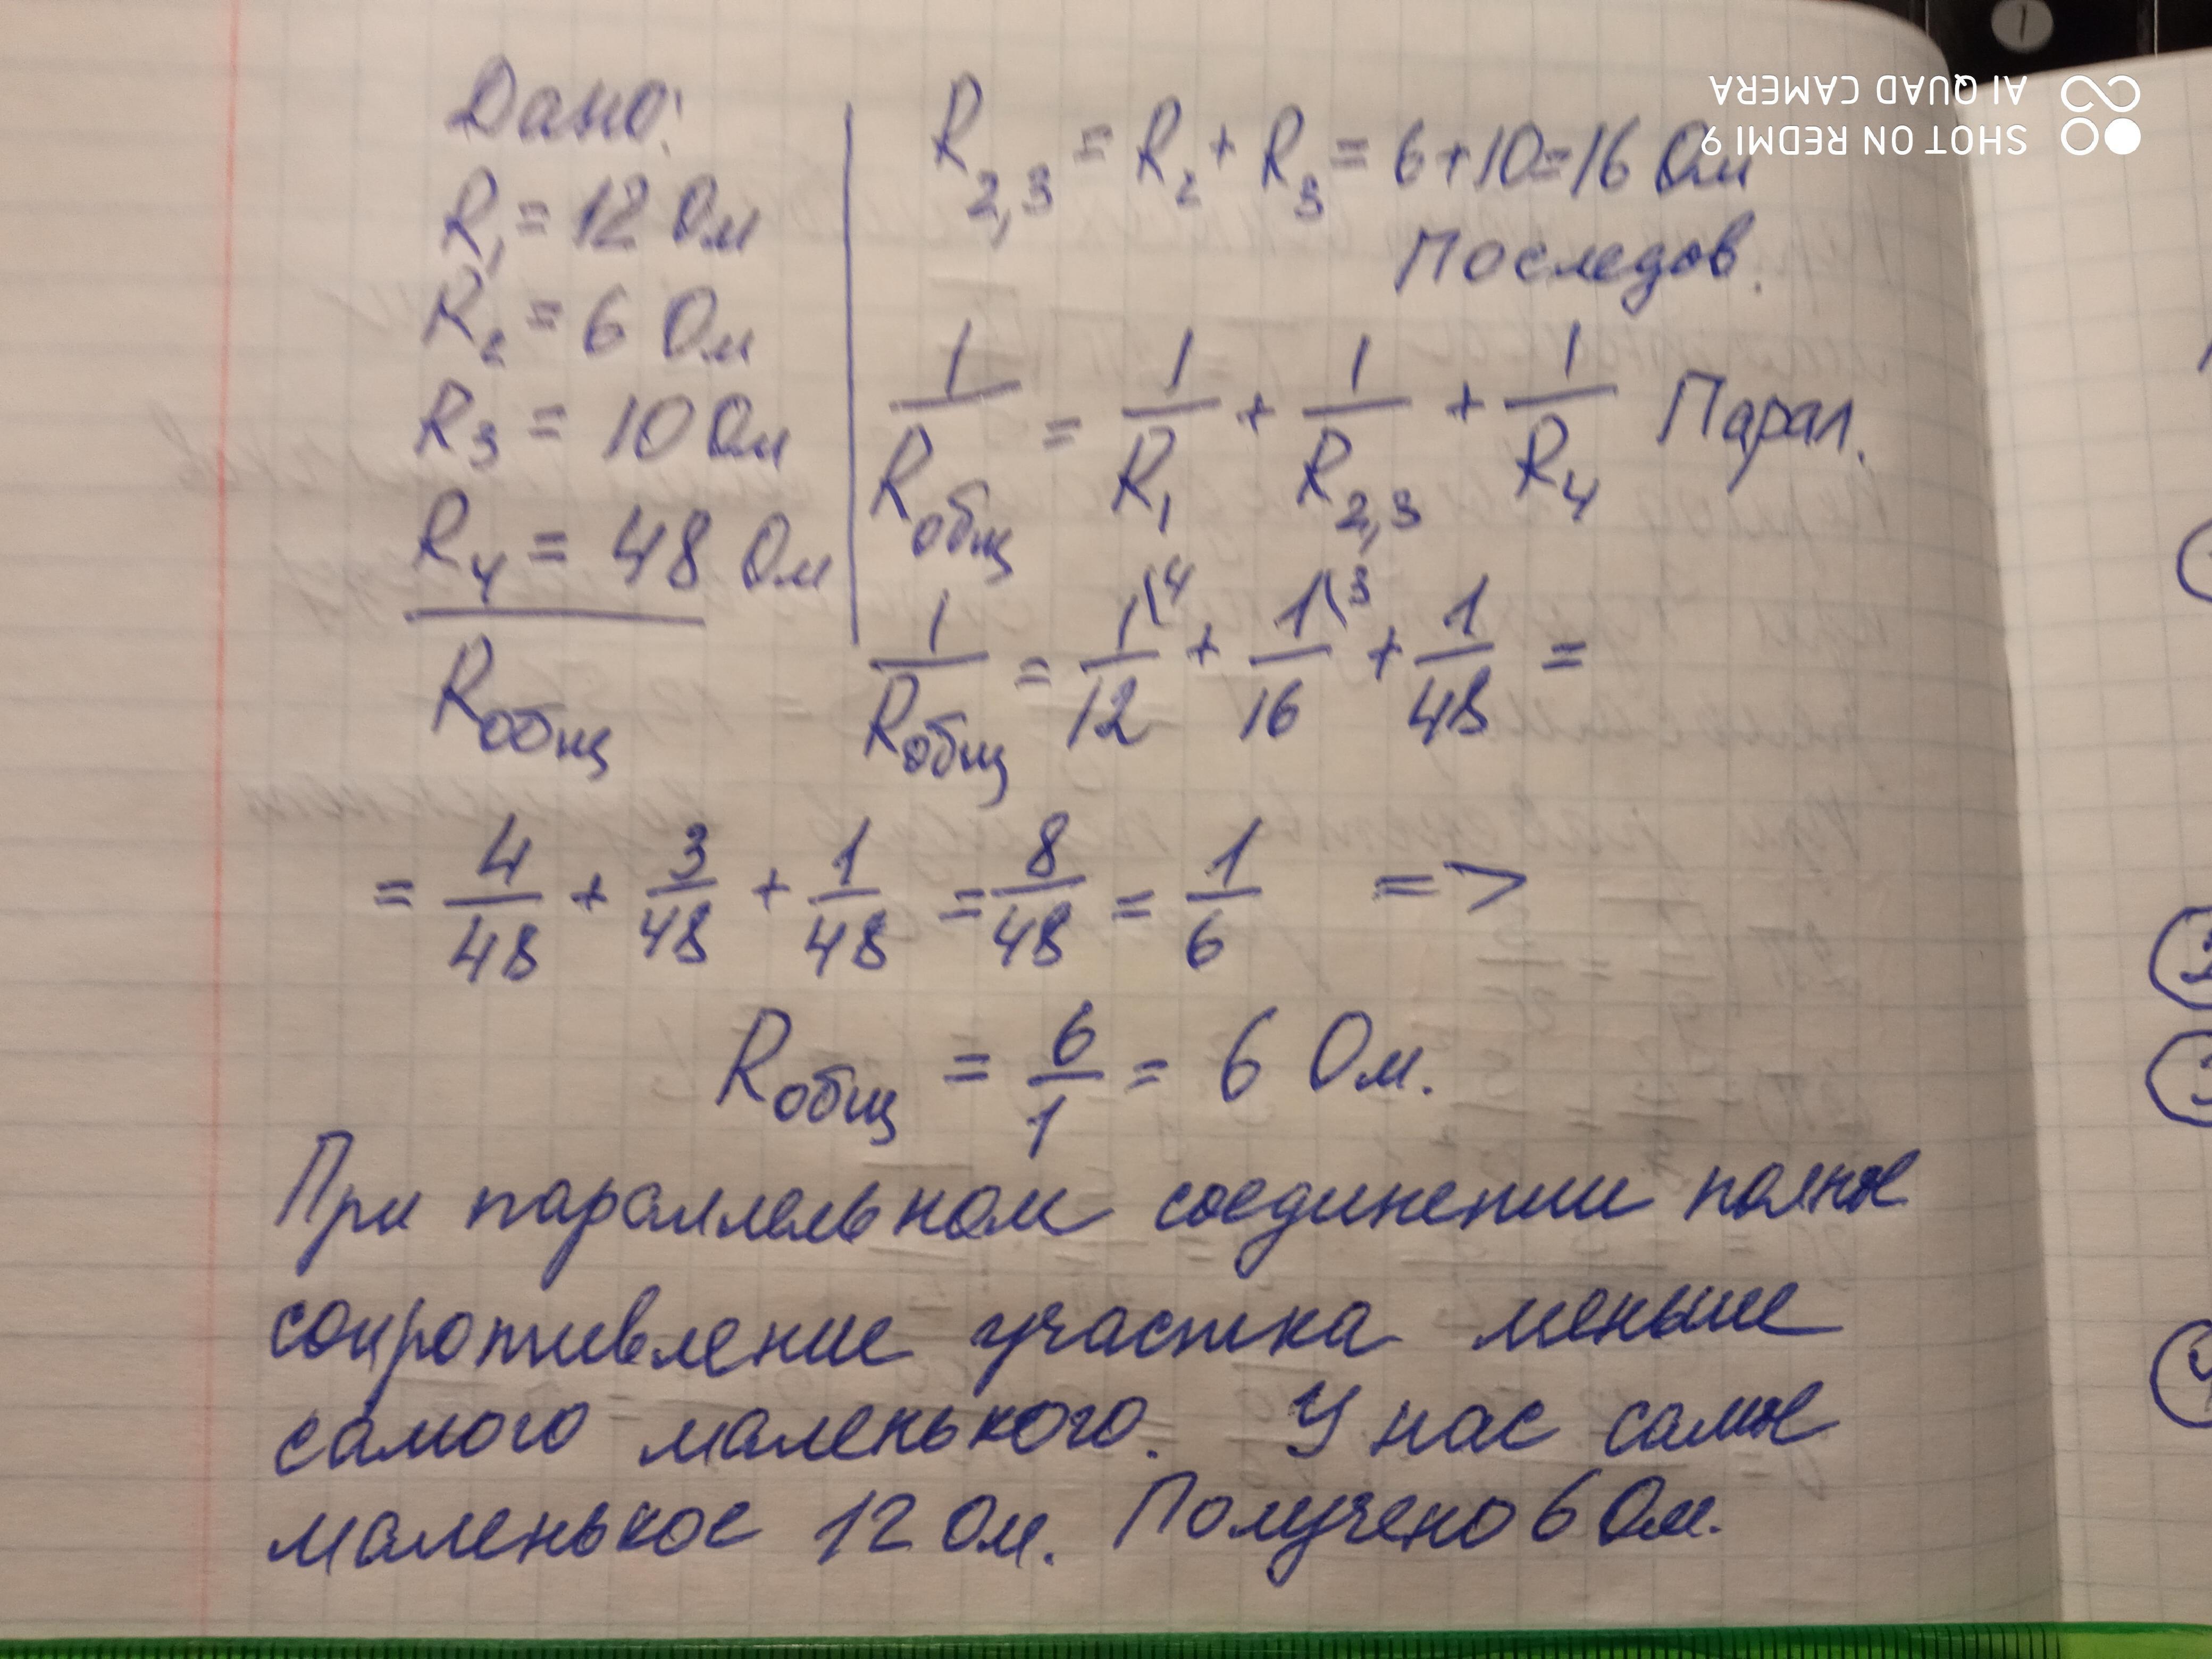 Дано:
R₁ = 12 Ом
R₂ = 6 Ом
R₃ = 10 Ом
R₄ = 48 Ом
Rобщ
R₂,₃ = R₂ + R₃ = 6+10=16 Ом
Последов.
1/Rобщ = 1/R₁ + 1/R₂,₃ + 1/R₄ Парал.
1/Rобщ = 1\⁴/12 + 1\³/16 + 1/48 =
= 4/48 + 3/48 + 1/48 = 8/48 = 1/6 =>
Rобщ = 6/1 = 6 Ом.
При параллельном соединении полное
сопротивление участка меньше
самого маленького. У нас самое
маленькое 12 Ом. Получено 6 Ом.
SHOT ON REDMI 9
AI QUAD CAMERA